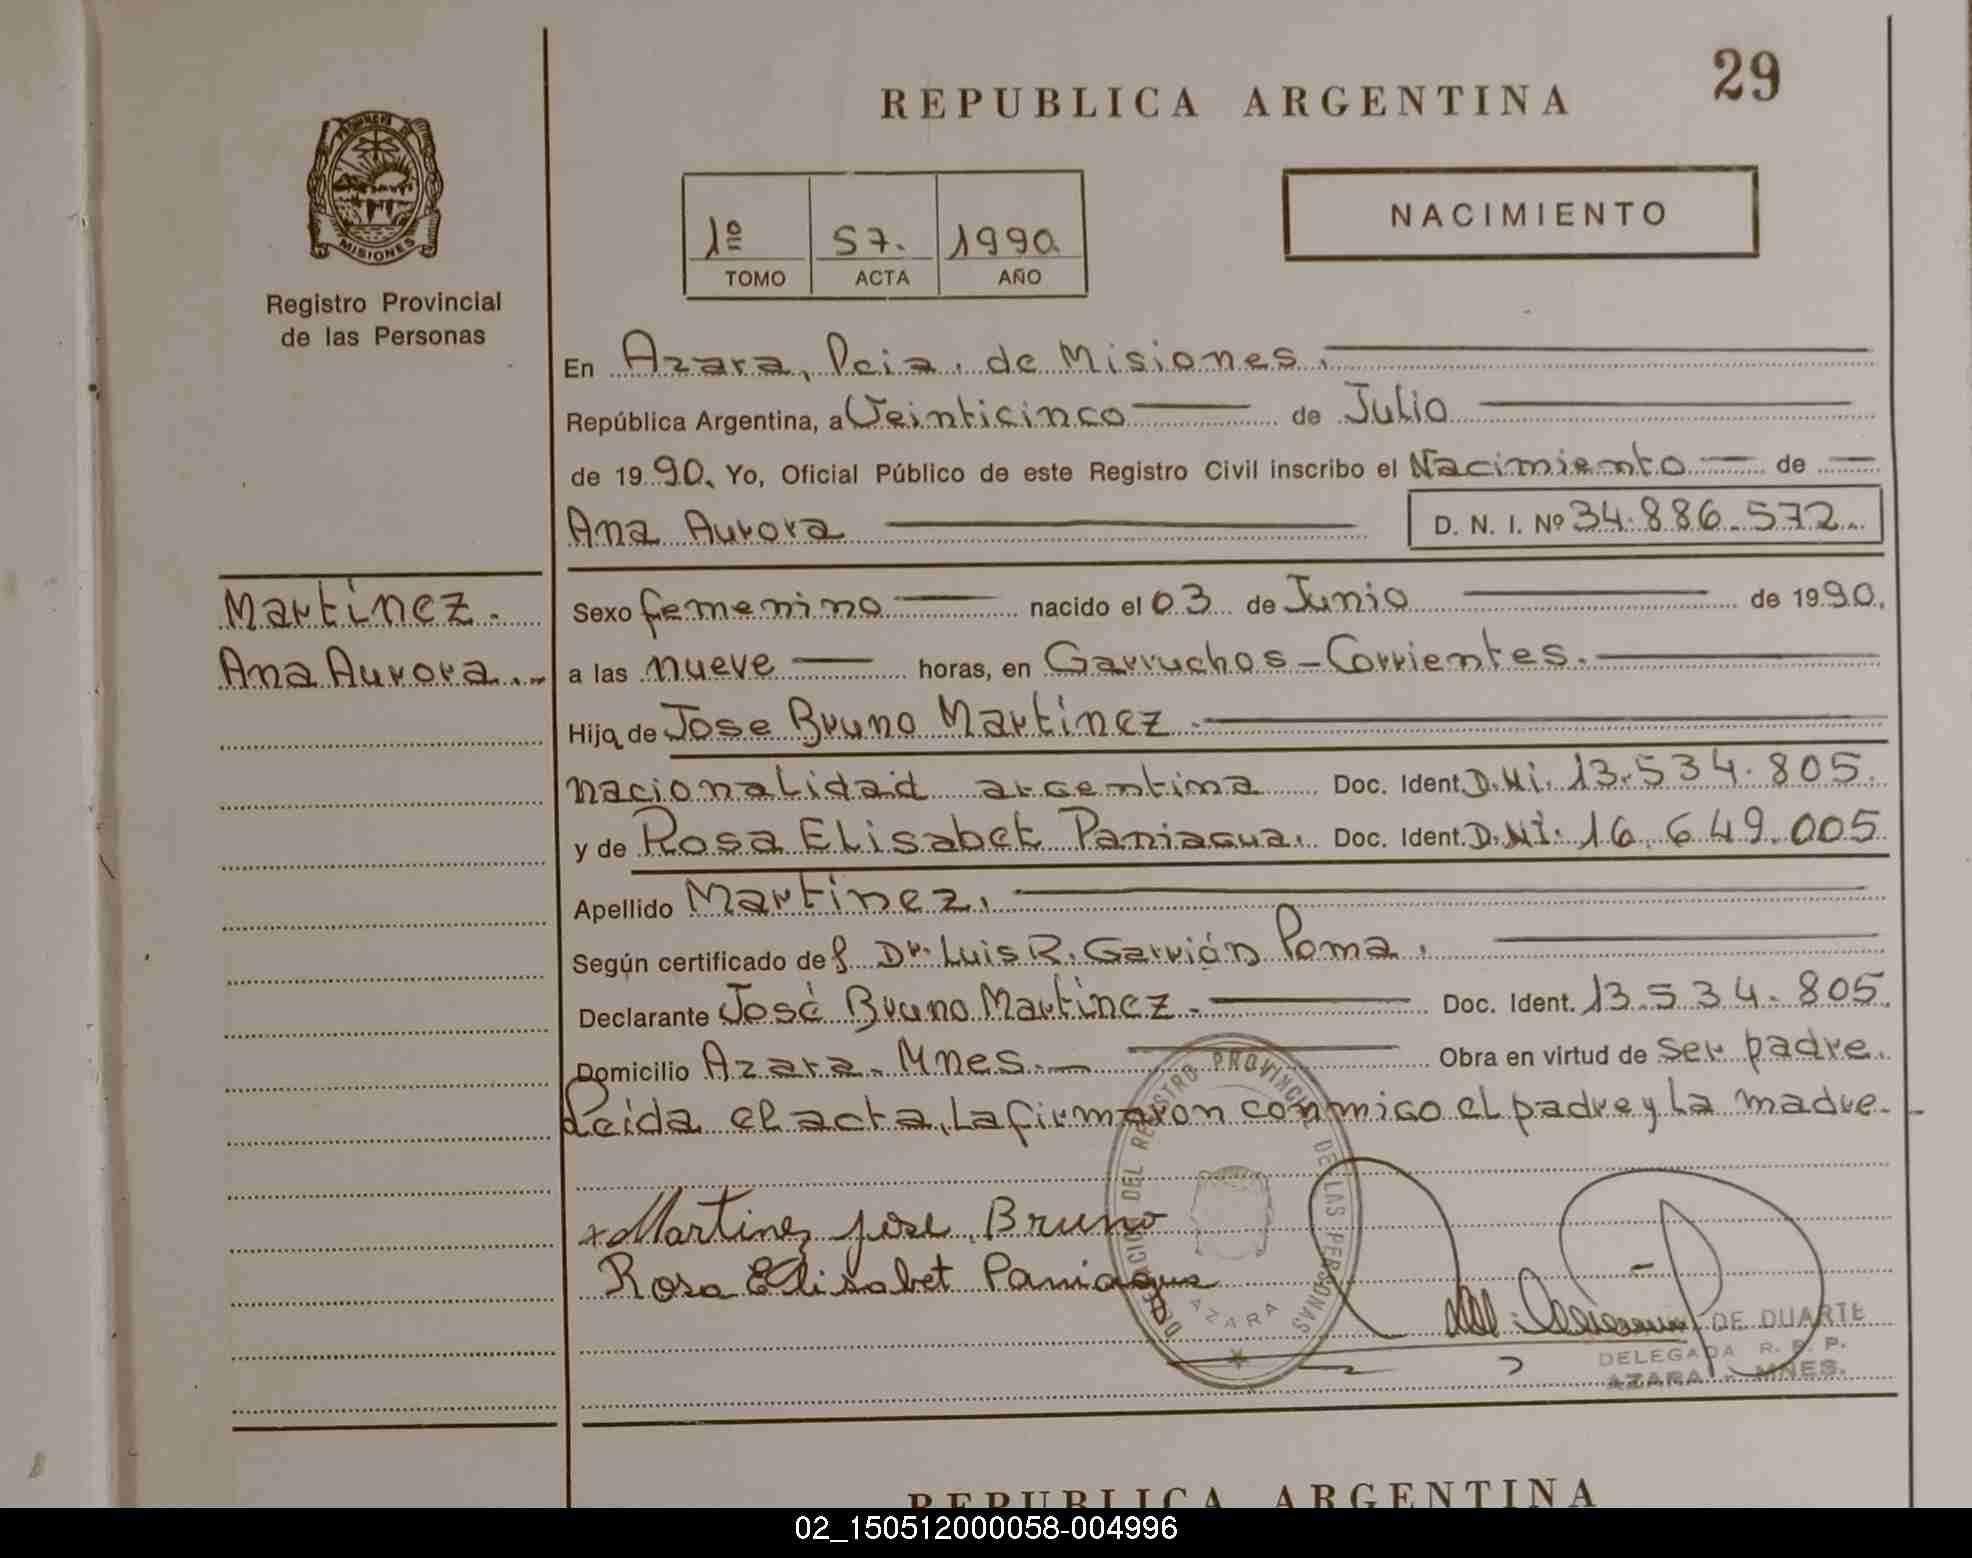 29
REPUBLICA ARGENTINA
PROVINCIA DE
MISIONES
Registro Provincial
de las Personas
1º 57. 1990
TOMO ACTA AÑO
NACIMIENTO
En Azara, Pcia. de Misiones.
República Argentina, a Veinticinco de Julio
de 1990. Yo, Oficial Público de este Registro Civil inscribo el Nacimiento de
Ana Aurora D. N. I. Nº 34.886.572.
Martínez.
Ana Aurora.
Sexo femenino nacido el 03 de Junio de 1990.
a las nueve horas, en Garruchos - Corrientes.
Hija de Jose Bruno Martínez.
nacionalidad argentina Doc. Ident. D.Ni. 13.534.805.
y de Rosa Elisabet Paniagua. Doc. Ident. D.NI. 16.649.005
Apellido Martínez.
Según certificado del Dr. Luis R. Garrián Poma.
Declarante José Bruno Martínez. Doc. Ident. 13.534.805.
Domicilio Azara - Mnes. Obra en virtud de ser padre.
Leida el acta, la firmaron conmigo el padre y la madre.
x Martinez jose Bruno
Rosa Elisabet Paniagua
DELEGACION DEL REGISTRO PROVINCIAL DE LAS PERSONAS
AZARA
DE DUARTE
DELEGADA R. P. P.
AZARA - MNES.
REPUBLICA ARGENTINA
02_150512000058-004996